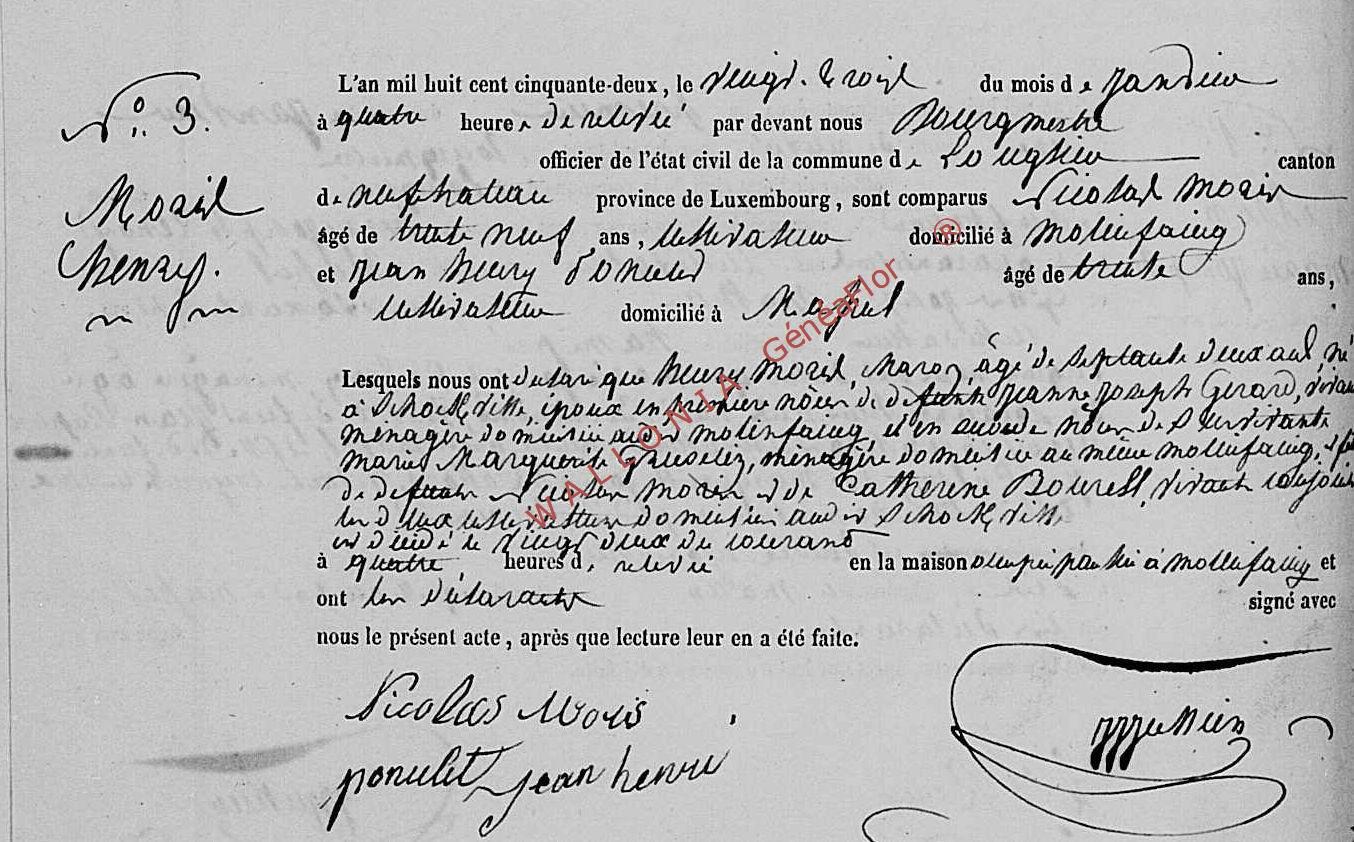 N° 3.
Moris
henry.
L'an mil huit cent cinquante-deux, le vingt-trois du mois de janvier
à quatre heures de relevée par devant nous Bourgmestre
officier de l'état civil de la commune de Longlier canton
de neufchateau province de Luxembourg, sont comparus Nicolas Moris
âgé de trente neuf ans, cultivateur domicilié à Molinfaing
et jean henry âgé de trente ans,
cultivateur domicilié à
Lesquels nous ont déclaré que henry Moris, âgé de septante deux ans, né
à Schockville, époux en première nôces de défunte jeanne joseph Gerard, vivant
ménagère domiciliée audit molinfaing, et en seconde nôces de Survivante
marie Marguerite ménagère domiciliée au même mollinfaing, fils
de defunts Nicolas Moris et de Catherine vivant
les deux cultivateurs domiciliés audit Schockville
est décédé le vingt deux du courant
à quatre heures de relevée en la maison occupée par lui à mollifaing et
ont les déclarants signé avec
nous le présent acte, après que lecture leur en a été faite.
Nicolas Moris
ponselet jean henri
WALLONIA GénéaFlor ®